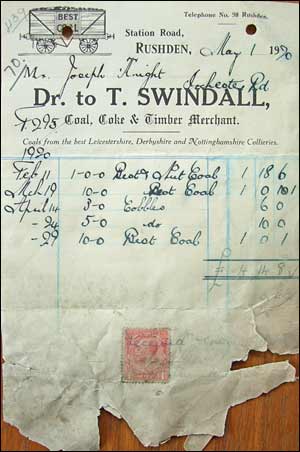 BEST
COAL
Telephone No. 98 Rushden.
Station Road,
RUSHDEN, May 1 1920
To Mr. Joseph Knight
Irchester Rd
Dr. to T. SWINDALL,
Coal, Coke & Timber Merchant.
Coals from the best Leicestershire, Derbyshire and Nottinghamshire Collieries.
1920
Feb 11 1-0-0 Best & Nut Coal 1 18 6
Mch 19 10-0 Best Coal 1 0 10½
April 14 3-0 Cobbles 6 0
- 24 5-0 do 10 0
- 29 10-0 Best Coal 1 0
£ 4